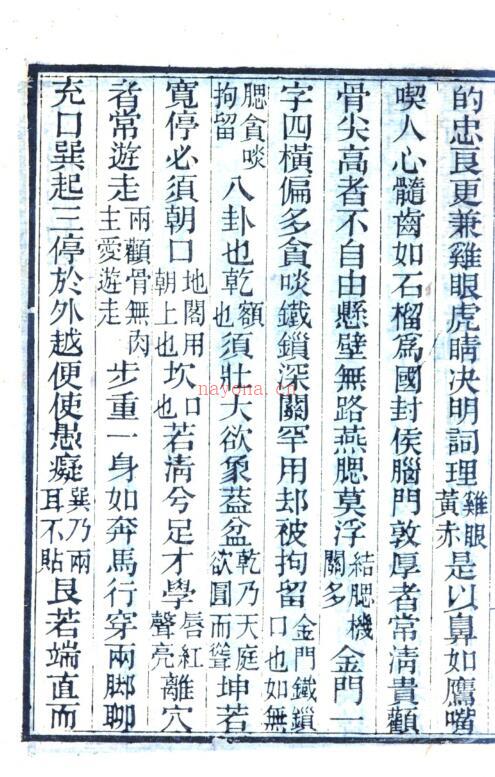 的忠良更兼雞眼虎睛决明詞理雞眼黃赤是以鼻如鷹嘴
喫人心髓齒如石榴爲國封侯腦門敦厚者常淸貴顴
骨尖高者不自由懸壁無路燕腮莫浮結腮機關多金門一
字四橫偏多貪啖鐵鎖深關罕用却被拘留金門鐵鎖口也如無
腮貪啖拘留八卦也乾額也須壯大欲象葢盆乾乃天庭欲圓而聳坤若
寬停必須朝口地閣用朝上也坎口也若淸兮足才學唇紅聲亮離穴
者常遊走兩顴骨無肉主愛遊走步重一身如奔馬行穿兩脚聊
充口巽起三停於外越便使愚癡巽乃兩耳不貼艮若端直而
nayona.cn